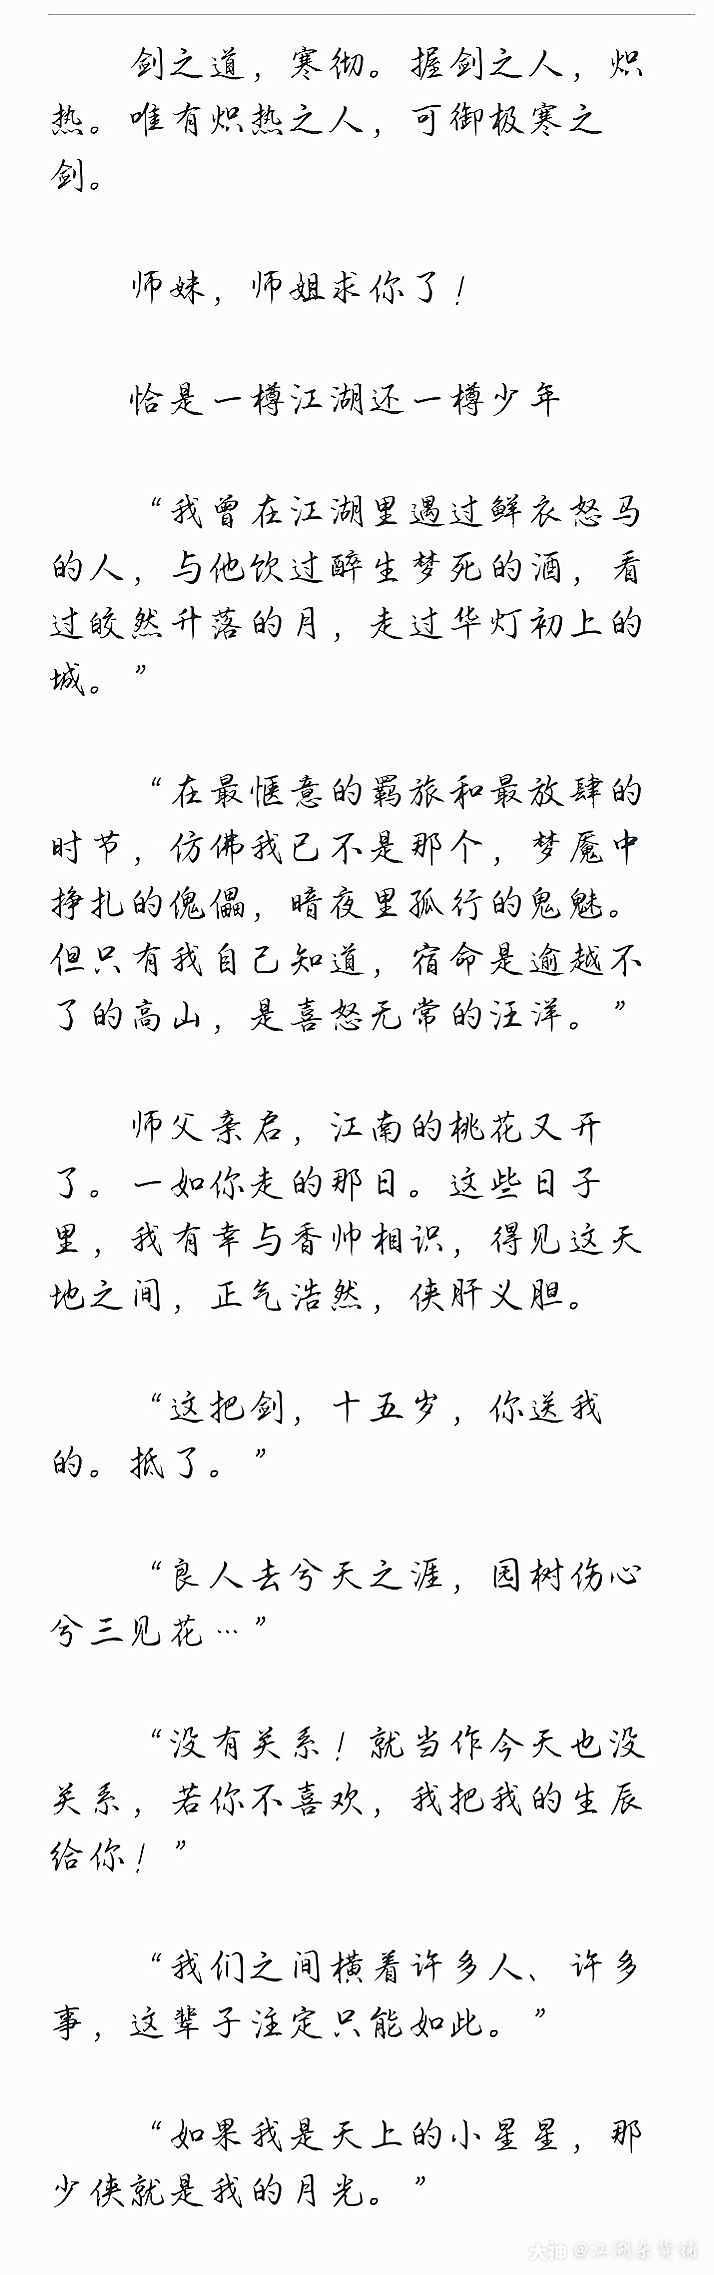 剑之道，寒彻。握剑之人，炽
热。唯有炽热之人，可御极寒之
剑。
师妹，师姐求你了！
恰是一樽江湖还一樽少年
“我曾在江湖里遇过鲜衣怒马
的人，与他饮过醉生梦死的酒，看
过皎然升落的月，走过华灯初上的
城。”
“在最惬意的羁旅和最放肆的
时节，仿佛我已不是那个，梦魇中
挣扎的傀儡，暗夜里孤行的鬼魅。
但只有我自己知道，宿命是逾越不
了的高山，是喜怒无常的汪洋。”
师父亲启，江南的桃花又开
了。一如你走的那日。这些日子
里，我有幸与香帅相识，得见这天
地之间，正气浩然，侠肝义胆。
“这把剑，十五岁，你送我
的。抵了。”
“良人去兮天之涯，园树伤心
兮三见花…”
“没有关系！就当作今天也没
关系，若你不喜欢，我把我的生辰
给你！”
“我们之间横着许多人、许多
事，这辈子注定只能如此。”
“如果我是天上的小星星，那
少侠就是我的月光。”
大神@江湖杂货铺